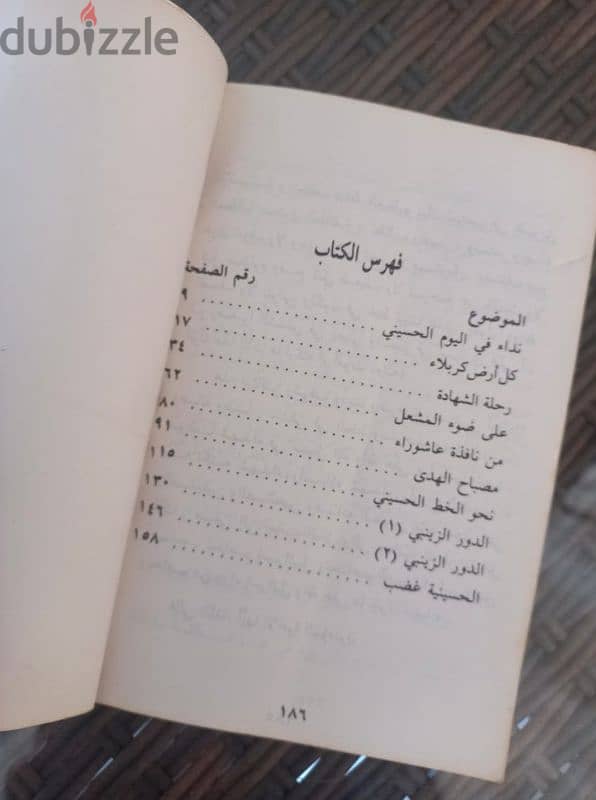 dubizzle
فهرس الكتاب
الموضوع رقم الصفحة
نداء في اليوم الحسيني . . . . . . . . . . . . . . . . ٩
كل أرض كربلاء . . . . . . . . . . . . . . . . ١٧
رحلة الشهادة . . . . . . . . . . . . . . . . ٣٤
على ضوء المشعل . . . . . . . . . . . . . . . . ٦٢
من نافذة عاشوراء . . . . . . . . . . . . . . . . ٨٠
مصباح الهدى . . . . . . . . . . . . . . . . ٩١
نحو الخط الحسيني . . . . . . . . . . . . . . . . ١١٥
الدور الزينبي (١) . . . . . . . . . . . . . . . . ١٣٠
الدور الزينبي (٢) . . . . . . . . . . . . . . . . ١٤٦
الحسينية غضب . . . . . . . . . . . . . . . . ١٥٨
١٨٦